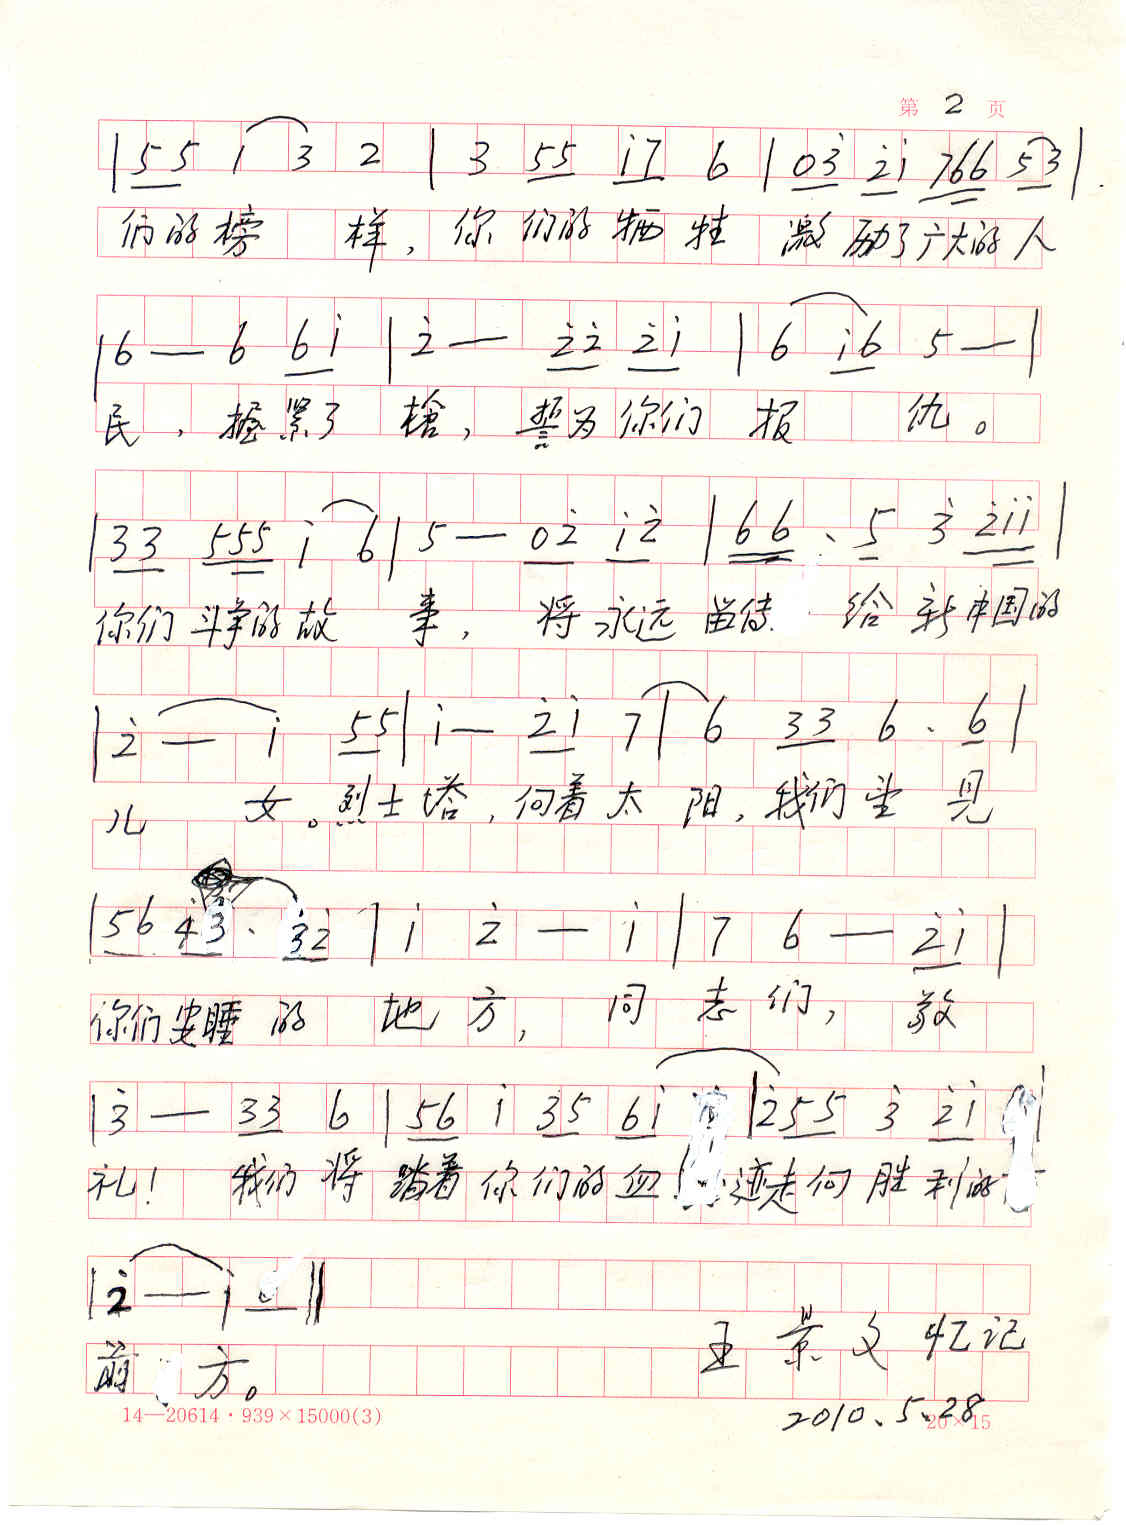 第 2 页
|55 i 3 2 | 3 55 i7 6 | 03 2i 766 53|
们的榜 样，你们的牺牲 激励了广大的人
|6 — 6 6i | 2 — 22 2i | 6 i6 5 — |
民，握紧了 枪，誓为你们 报 仇。
|33 555 i 6 | 5 — 02 i2 | 66 . 5 3 2ii |
你们斗争的故 事，将永远 留待 给 新中国的
|2 — i 55 | i — 2i 7 | 6 33 6 . 6 |
儿 女。烈士塔，向着太 阳，我们望 见
|56 43 . 32 | i 2 — i | 7 6 — 2i |
你们安睡的 地方，同 志们，敬
|3 — 33 6 | 56 i 35 6i | 255 3 2i |
礼！ 我们将 踏着你们的血 迹走向 胜利的
|2 — i ‖
前 方。
王景文忆记
2010.5.28
14—20614·939×15000(3)
20×15